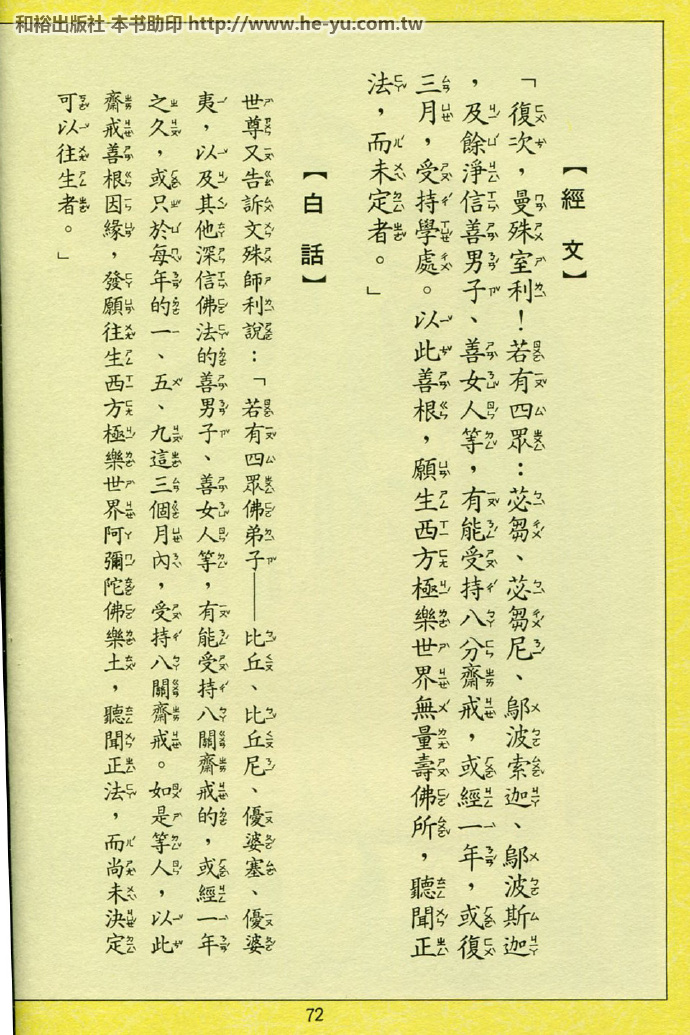 和裕出版社 本书助印 http://www.he-yu.com.tw
【經文】
「復次，曼殊室利！若有四眾：苾芻、苾芻尼、鄔波索迦、鄔波斯迦
，及餘淨信善男子、善女人等，有能受持八分齋戒，或經一年，或復
三月，受持學處。以此善根，願生西方極樂世界無量壽佛所，聽聞正
法，而未定者。」
【白話】
世尊又告訴文殊師利說：「若有四眾佛弟子——比丘、比丘尼、優婆塞、優婆
夷，以及其他深信佛法的善男子、善女人等，有能受持八關齋戒的，或經一年
之久，或只於每年的一、五、九這三個月內，受持八關齋戒。如是等人，以此
齋戒善根因緣，發願往生西方極樂世界阿彌陀佛樂土，聽聞正法，而尚未決定
可以往生者。」
72